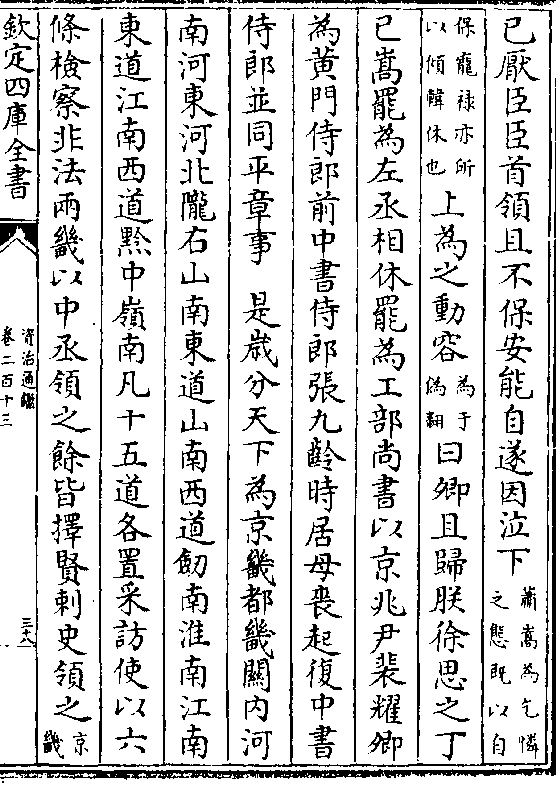 已厭臣臣首領且不保安能自遂因泣下蕭嵩為乞憐之態既以自
保寵禄亦所以傾韓休也上為之動容為于偽翻曰卿且歸朕徐思之丁
已嵩罷為左丞相休罷為工部尚書以京兆尹裴耀卿
為黄門侍郎前中書侍郎張九齡時居母喪起復中書
侍郎並同平章事 是歲分天下為京畿都畿關内河
南河東河北隴右山南東道山南西道劒南淮南江南
東道江南西道黔中嶺南凡十五道各置采訪使以六
條檢察非法兩畿以中丞領之餘皆擇賢刺史領之京畿
欽定四庫全書
資治通鑑
卷二百十三
三十八